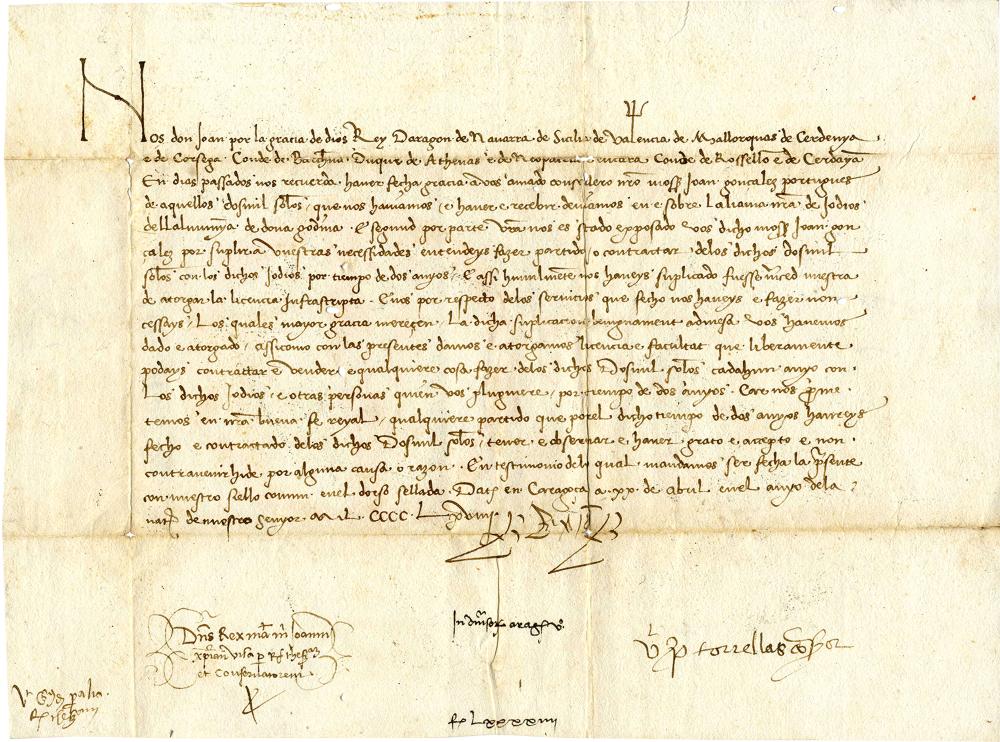 Nos don Joan por la gracia de dios Rey Daragon de Navarra de Sicilia de Valencia de Mallorquas de Cerdenya
e de Corsega Conde de Barchna Duque de Athenas e de Neopatria e encara Conde de Rossello e de Cerdaya
En dias passados nos recuerda haver fecha gracia a vos amado consellero nro moss Joan goncalez portugues
de aquellos dosmil solos que nos haviamos e haver e recebir deviamos en e sobre la liama nra de Jodios
dellalmunya de dona godina E segund por parte vra nos es stado exposado vos dicho moss Joan gon
calez por suplir a vuestras necessidades entendeys fazer partido o contractar delos dichos dosmil
solos con los dichos Jodios por tiempo de dos anyos E assi humilmete nos haveys suplicado fuesse mced nuestra
de atorgar la licencia Infrascripta E nos por respecto delos servicios que fecho nos haveys e fazer non
cessays Los quales mayor gracia merecen La dicha suplicacion benignament admesa vos havemos
dado e atorgado assi como con las presentes damos e atorgamos licencia e facultat que liberamente
podays contracttar e vender e qualquiere cosa fazer delos dichos Dosmil solos cadahun anyo con
Los dichos Jodios e otras personas quien vos plugniere por tiempo de dos anyos Car nos prome
temos en nra buena fe reyal qualquiere partido que por el dicho tiempo de dos anyos havreys
fecho e contractado delos dichos Dosmil solos tener e observar e haver grato e accepto e non
contravenir hide por alguna causa o razon En testimonio dela qual mandamos ser fecha la psente
con nuestro siello comun enel dorso sellada Dat en Caragoca a xx de abril enel anyo dela
nat de nuestro Senyor Mil CCCC Lxviii
Dns Rex
et Conservatorem
In diversor aragon
torrellas
f Lxxxxiiii